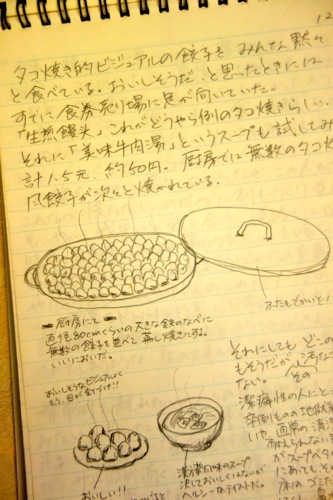 12
タコ焼き的ビジュアルの餃子を みんな黙々
と食べている。おいしそうだ、と思ったときには
すでに食券売り場に足が向いていた。
「生煎饅头」これがどうやら例のタコ焼きらしい。
それに「美味牛肉湯」というスープも試してみ
計1.5元、約50円。厨房では無数のタコ焼
風餃子が次々と焼かれている。
ふたもでかいぞ!
厨房にて
直径80cmくらいの大きな鉄のなべに
無数の餃子を並べて蒸し焼きにする。
いいにおいだ。
おいしそうなビジュアルに
もう、目が釘づけ!!
おいしい!!
漢方風味のスープ
決しておいしくはないが
ヘルシーなテイストだ。
それにしても どこの
もそうだが、汚な
ない。その
潔癖性の人にと
卒倒ものの地獄
いや、通常の清潔
耐えられない
がスープや
にあっても、
床は、ゴミ